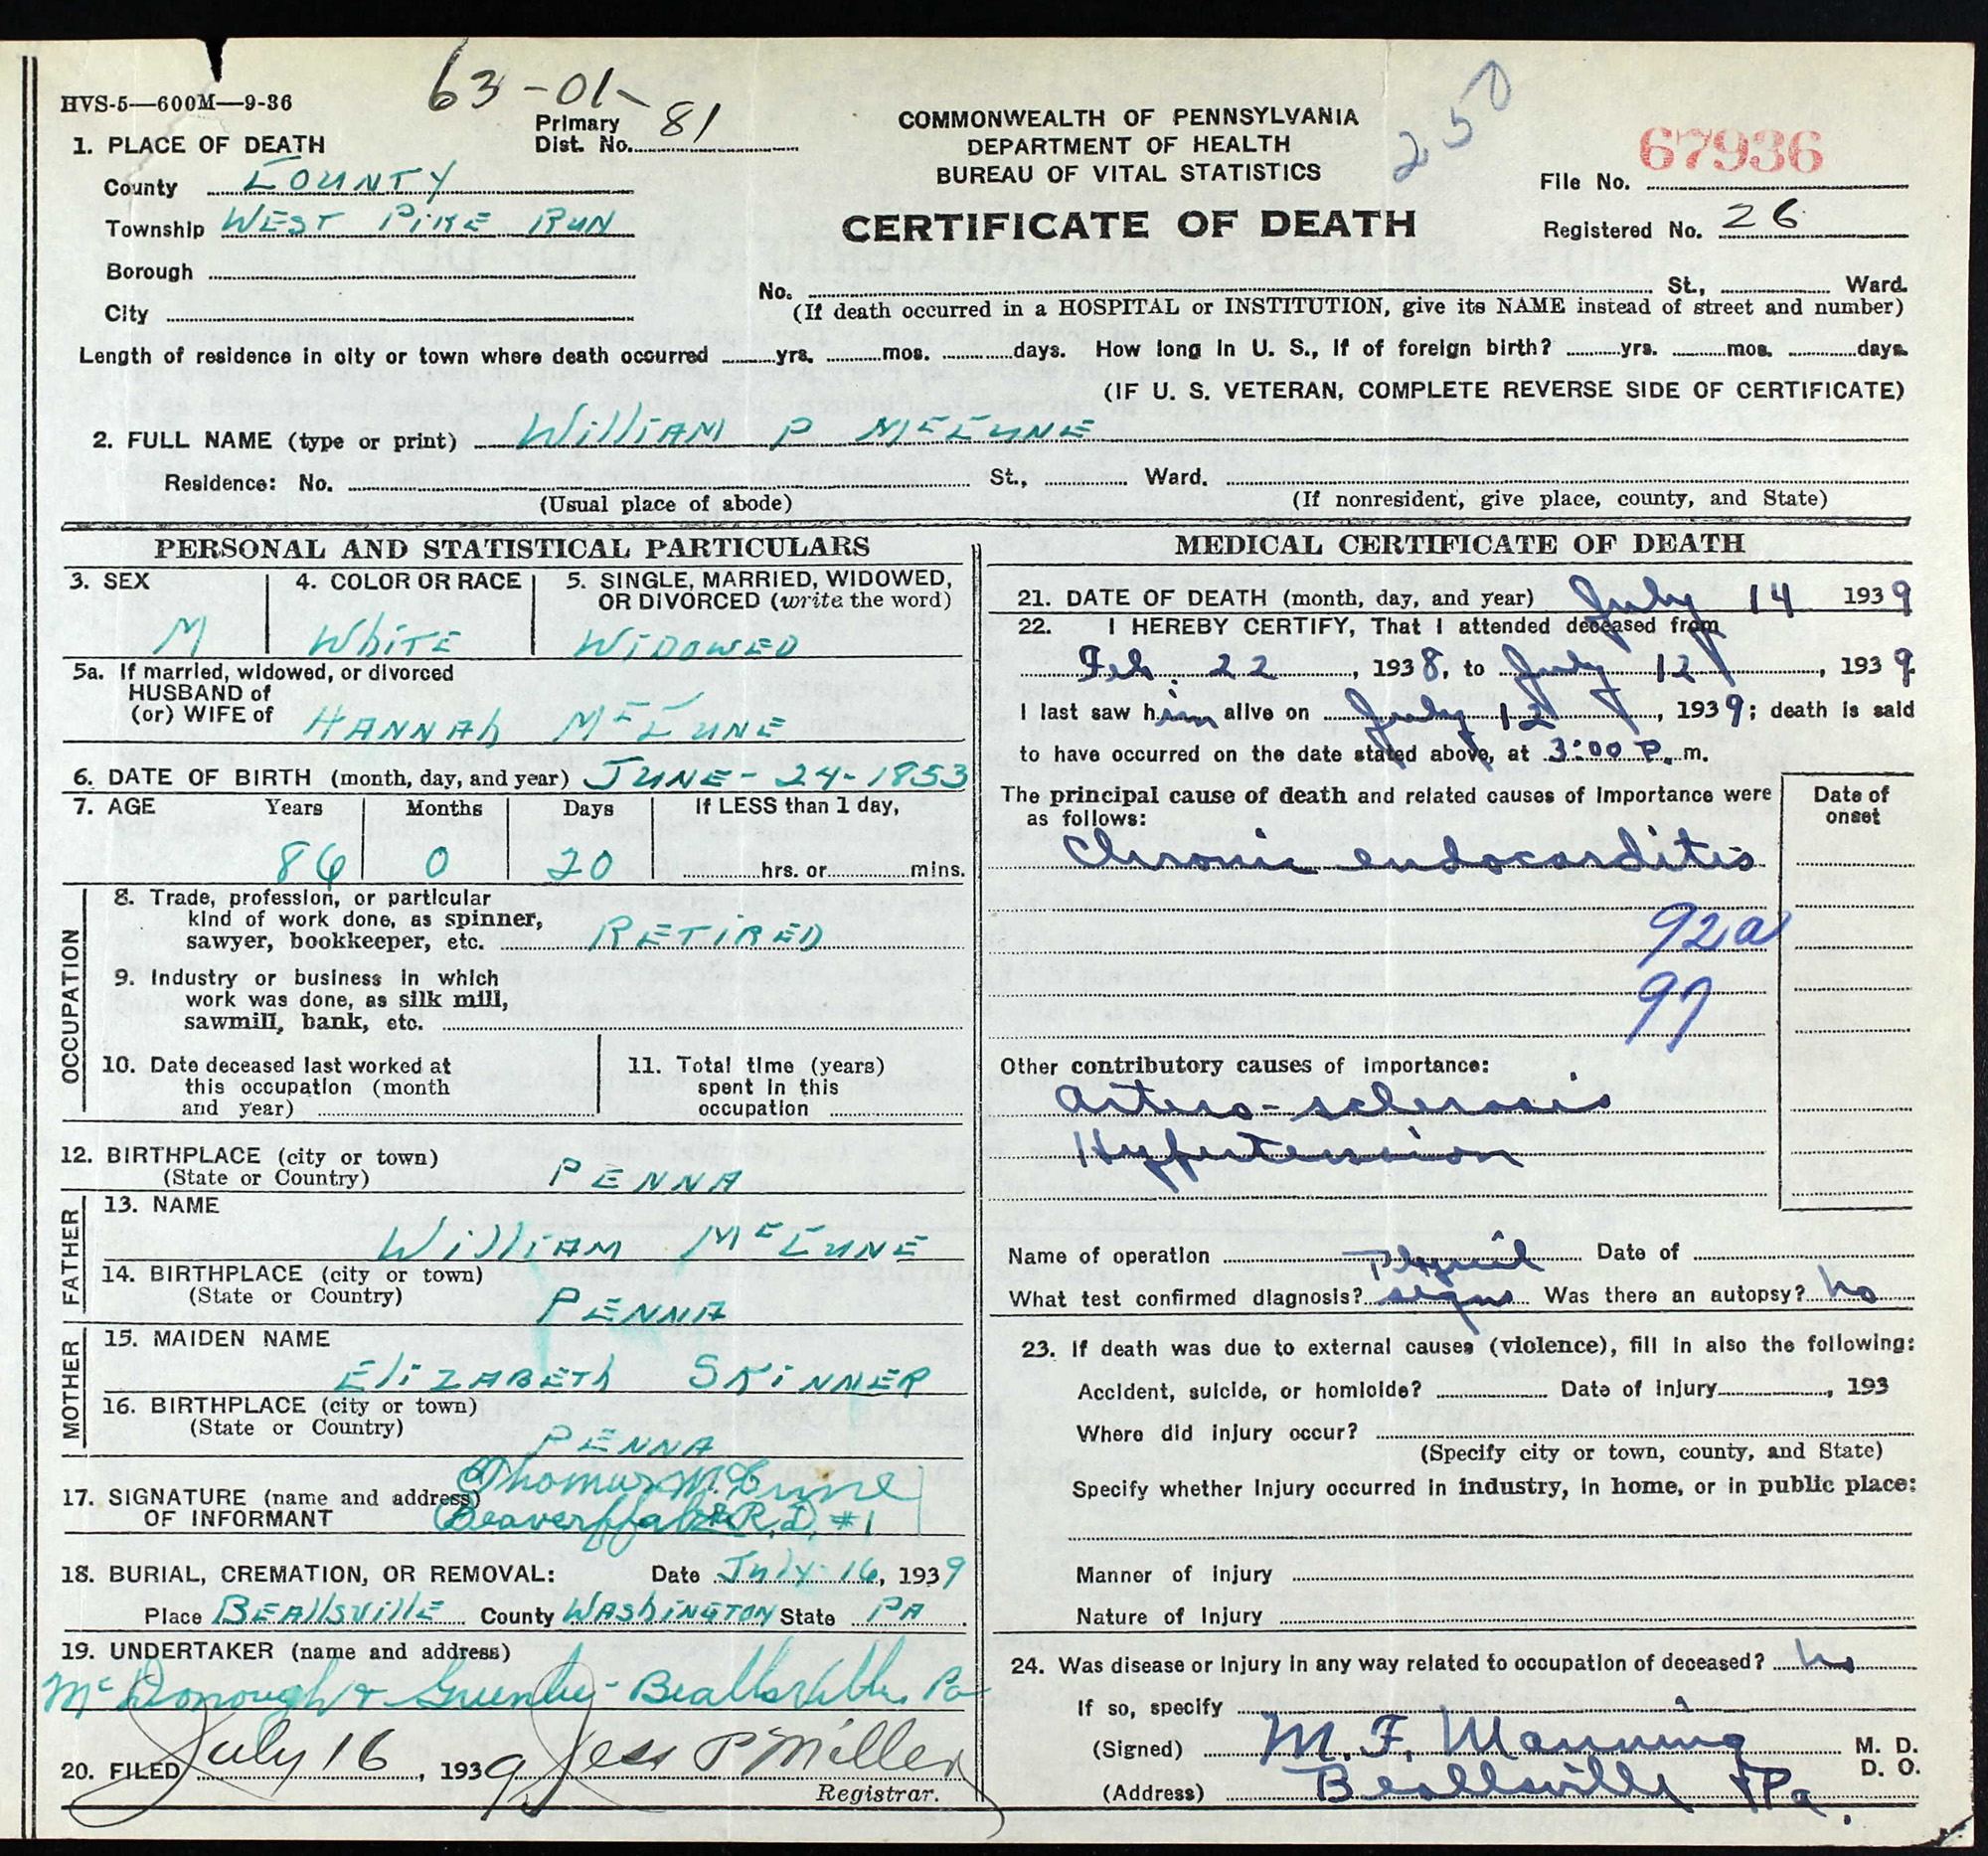 HVS-5—600M—9-36
63-01-
Primary
Dist. No. 81
250
COMMONWEALTH OF PENNSYLVANIA
DEPARTMENT OF HEALTH
BUREAU OF VITAL STATISTICS
CERTIFICATE OF DEATH
67936
File No.
Registered No. 26
1. PLACE OF DEATH
County COUNTY
Township WEST PIKE RUN
Borough
City
No. St., Ward.
(If death occurred in a HOSPITAL or INSTITUTION, give its NAME instead of street and number)
Length of residence in city or town where death occurred yrs. mos. days. How long in U. S., if of foreign birth? yrs. mos. days.
(IF U. S. VETERAN, COMPLETE REVERSE SIDE OF CERTIFICATE)
2. FULL NAME (type or print) WilliAM P McCUNE
Residence: No. St., Ward.
(Usual place of abode) (If nonresident, give place, county, and State)
PERSONAL AND STATISTICAL PARTICULARS
3. SEX 4. COLOR OR RACE 5. SINGLE, MARRIED, WIDOWED,
OR DIVORCED (write the word)
M WhiTE WiDOWED
5a. If married, widowed, or divorced
HUSBAND of
(or) WIFE of HANNAh McCUNE
6. DATE OF BIRTH (month, day, and year) JUNE-24-1853
7. AGE Years Months Days If LESS than 1 day,
86 0 20 hrs. or mins.
OCCUPATION
8. Trade, profession, or particular
kind of work done, as spinner,
sawyer, bookkeeper, etc. RETiRED
9. Industry or business in which
work was done, as silk mill,
sawmill, bank, etc.
10. Date deceased last worked at
this occupation (month
and year)
11. Total time (years)
spent in this
occupation
12. BIRTHPLACE (city or town)
(State or Country) PENNA
FATHER
13. NAME
WilliAM McCUNE
14. BIRTHPLACE (city or town)
(State or Country) PENNA
MOTHER
15. MAIDEN NAME
EliZABETh SKiNNER
16. BIRTHPLACE (city or town)
(State or Country) PENNA
17. SIGNATURE (name and address)
OF INFORMANT
Thomas McCune
Beaverffalls R.D. #1
18. BURIAL, CREMATION, OR REMOVAL: Date July 16, 1939
Place BEAllsvillE County WAShiNGTON State PA
19. UNDERTAKER (name and address)
McDonough & Beallsville. Pa
20. FILED July 16, 1939 Jess P Miller
Registrar.
MEDICAL CERTIFICATE OF DEATH
21. DATE OF DEATH (month, day, and year) July 14 1939
22. I HEREBY CERTIFY, That I attended deceased from
Feb. 22, 1938, to July 12, 1939
I last saw him alive on July 12, 1939; death is said
to have occurred on the date stated above, at 3:00 P. m.
The principal cause of death and related causes of importance were
as follows:
Date of
onset
Chronic endocarditis
92a
97
Other contributory causes of importance:
Arterio-sclerosis
Hypertension
Name of operation Date of
Physical
What test confirmed diagnosis? signs Was there an autopsy? no
23. If death was due to external causes (violence), fill in also the following:
Accident, suicide, or homicide? Date of injury , 193
Where did injury occur?
(Specify city or town, county, and State)
Specify whether injury occurred in industry, in home, or in public place:
Manner of injury
Nature of injury
24. Was disease or injury in any way related to occupation of deceased? no
If so, specify
(Signed) M. F. Manning M. D.
D. O.
(Address) Beallsville Pa.